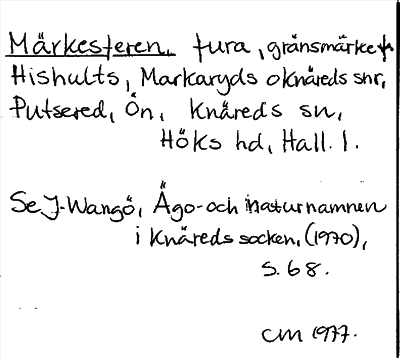 Märkesteren, tura, gränsmärke fr
Hishults, Markaryds o Knäreds snr,
Putsered, Ön, Knäreds sn,
Höks hd, Hall. l.
Se J. Wangö, Ägo- och naturnamnen
i Knäreds socken, (1970),
s. 68.
CM 1977.